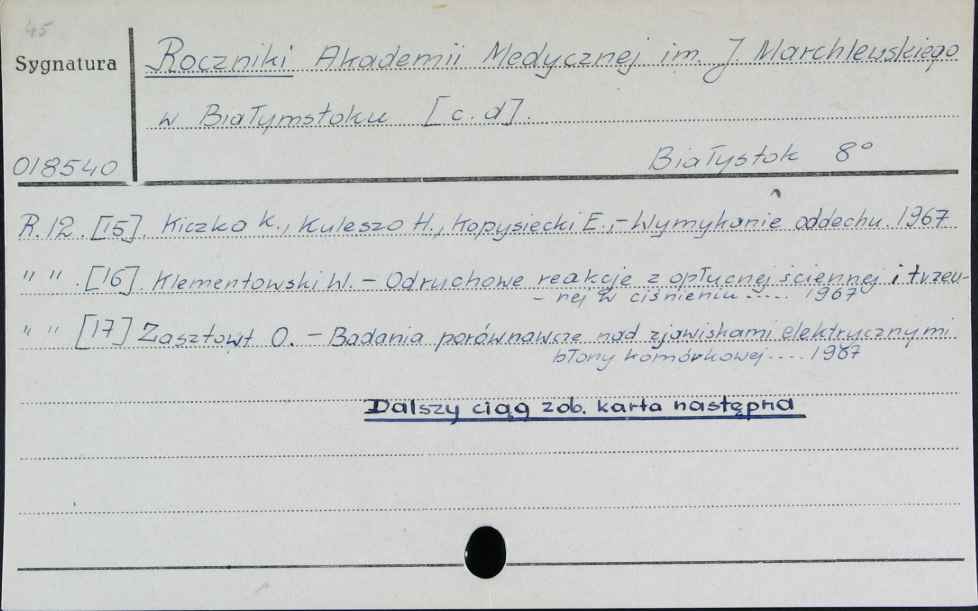 45
Sygnatura
Roczniki Akademii Medycznej im. J. Marchlewskiego
w Białymstoku [c.d].
018540
Białystok 8°
R. 12. [15]. Kiczka K., Kuleszo H., Kopysiecki E.,- Wymykanie oddechu. 1967
" " . [16]. Klementowski W. - Odruchowe reakcje z opłucnej ściennej i trzew-
- nej w ciśnieniu ..... 1967
" " [17] Zasztowt O. - Badania porównawcze nad zjawiskami elektrycznymi
błony komórkowej .... 1967
Dalszy ciąg zob. karta następna